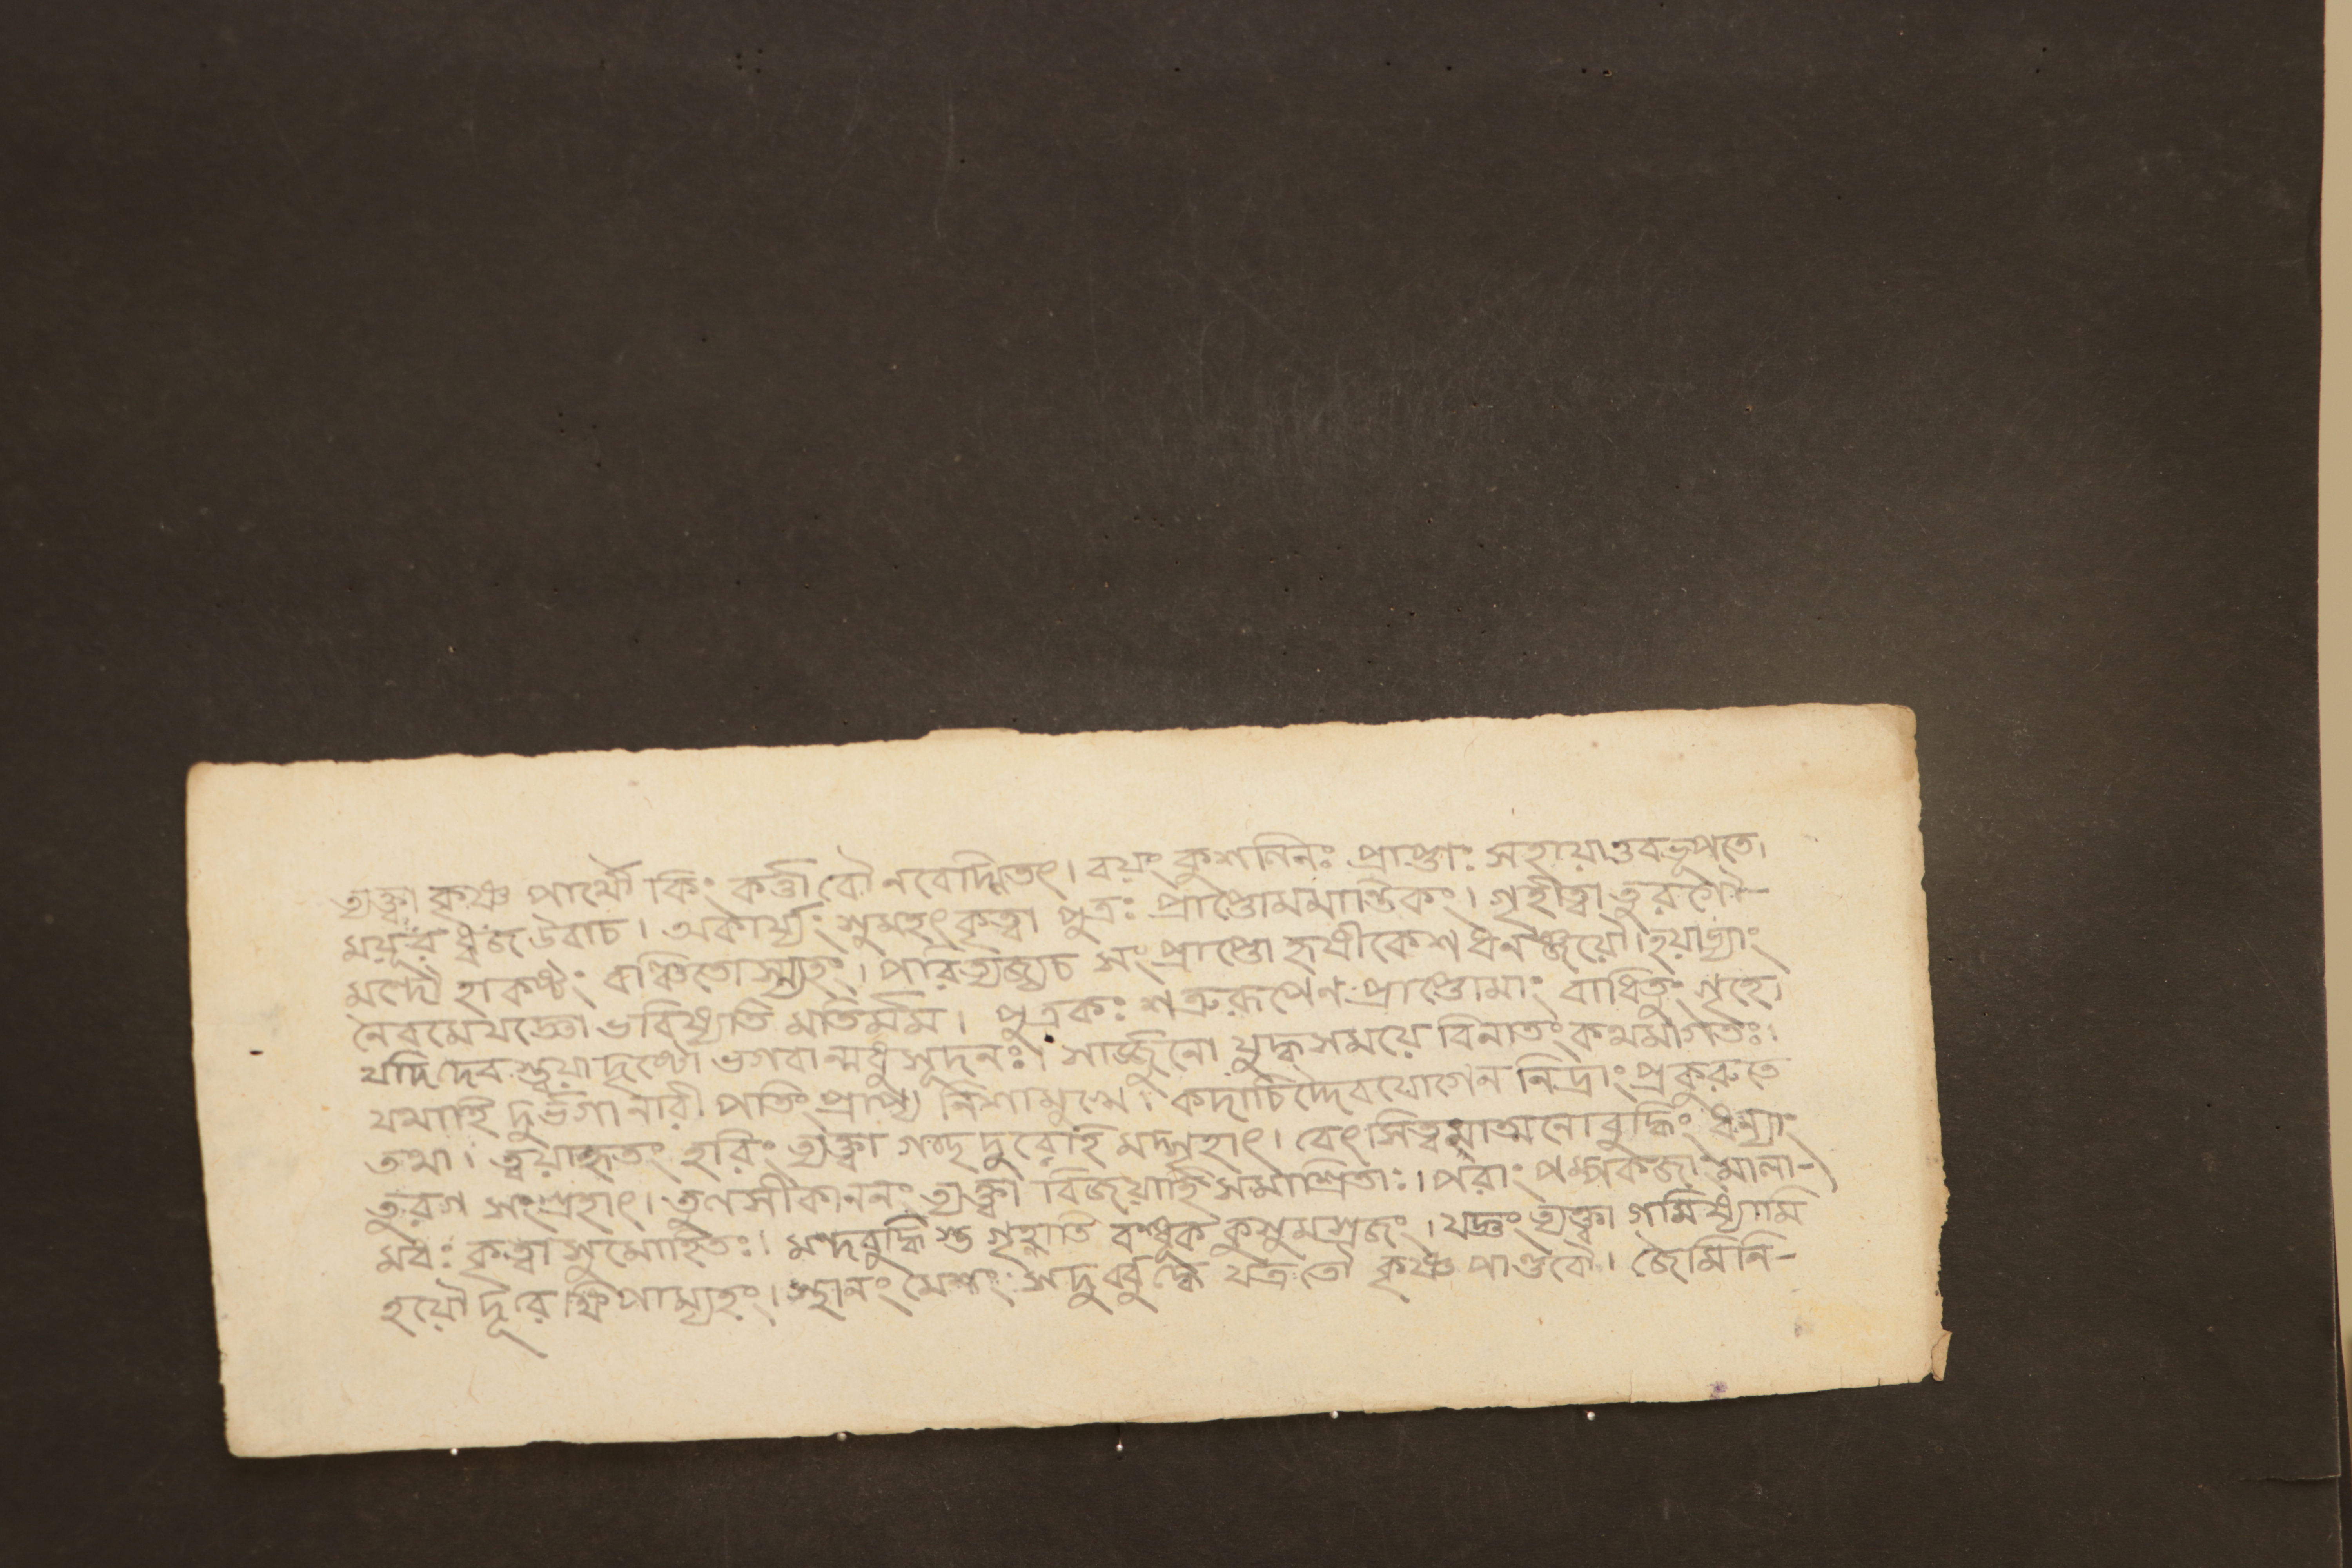 ত্যক্ত্বা কৃষ্ণ পার্থৌ কিং কর্ত্তা বৌনবেদ্মিতৎ। বয়ং কুশলিনঃ প্রাপ্তাঃ সহায়াওবভূপতে।
ময়ূর ধ্বজ উবাচ। অকার্য্যং সুমহৎ কৃত্বা পুত্রঃ প্রাপ্তোমমান্তিকং। গৃহীত্বা তুরগৌ-
মন্দৌ হাকষ্টং বাঞ্চিতোস্ম্যহং। পরিত্যজ্যচ সং প্রাপ্তো হৃষীকেশ ধনঞ্জয়ৌ। হয়াভ্যাং
নৈবমেযজ্ঞো ভবিষ্যতি মতির্মম। পুত্রকঃ শত্রুরূপেণ প্রাপ্তোমাং বাধিতুং গৃহে।
যদি দেব স্ত্বয়া দৃষ্টো ভগবান্মধুসূদনঃ। সার্জ্জুনো যুদ্ধসময়ে বিনাতং কথমাগতঃ।
যথাহি দুর্ভগা নারী পতিং প্রাপ্য নিশামুখে। কদাচিদ্দৈবযোগেন নিদ্রাং প্রকুরুতে
তথা। ত্বয়াহৃতং হরিং ত্যক্ত্বা গচ্ছ দুরোহি মদ্গৃহাৎ। বেৎসিত্বমাত্মনোবুদ্ধিং ধন্যাং
তুরগ সংগ্রহাৎ। তুলসীকাননং ত্যক্ত্বা বিজয়াহি সমাশ্রিতাঃ। পরাং পম্পকজাং মালা-
মধঃ কৃত্বা সুমোহিতঃ। মন্দবুদ্ধি স্তু গৃহ্নাতি বন্ধূক কুসুমস্রজং। যজ্ঞং ত্যক্ত্বা গমিষ্যামি
হয়ৌ দূরে ক্ষিপাম্যহং। স্থানং মেশং সদুর্ব্বুদ্ধে যত্র তৌ কৃষ্ণ পাণ্ডবৌ। জৈমিনি-